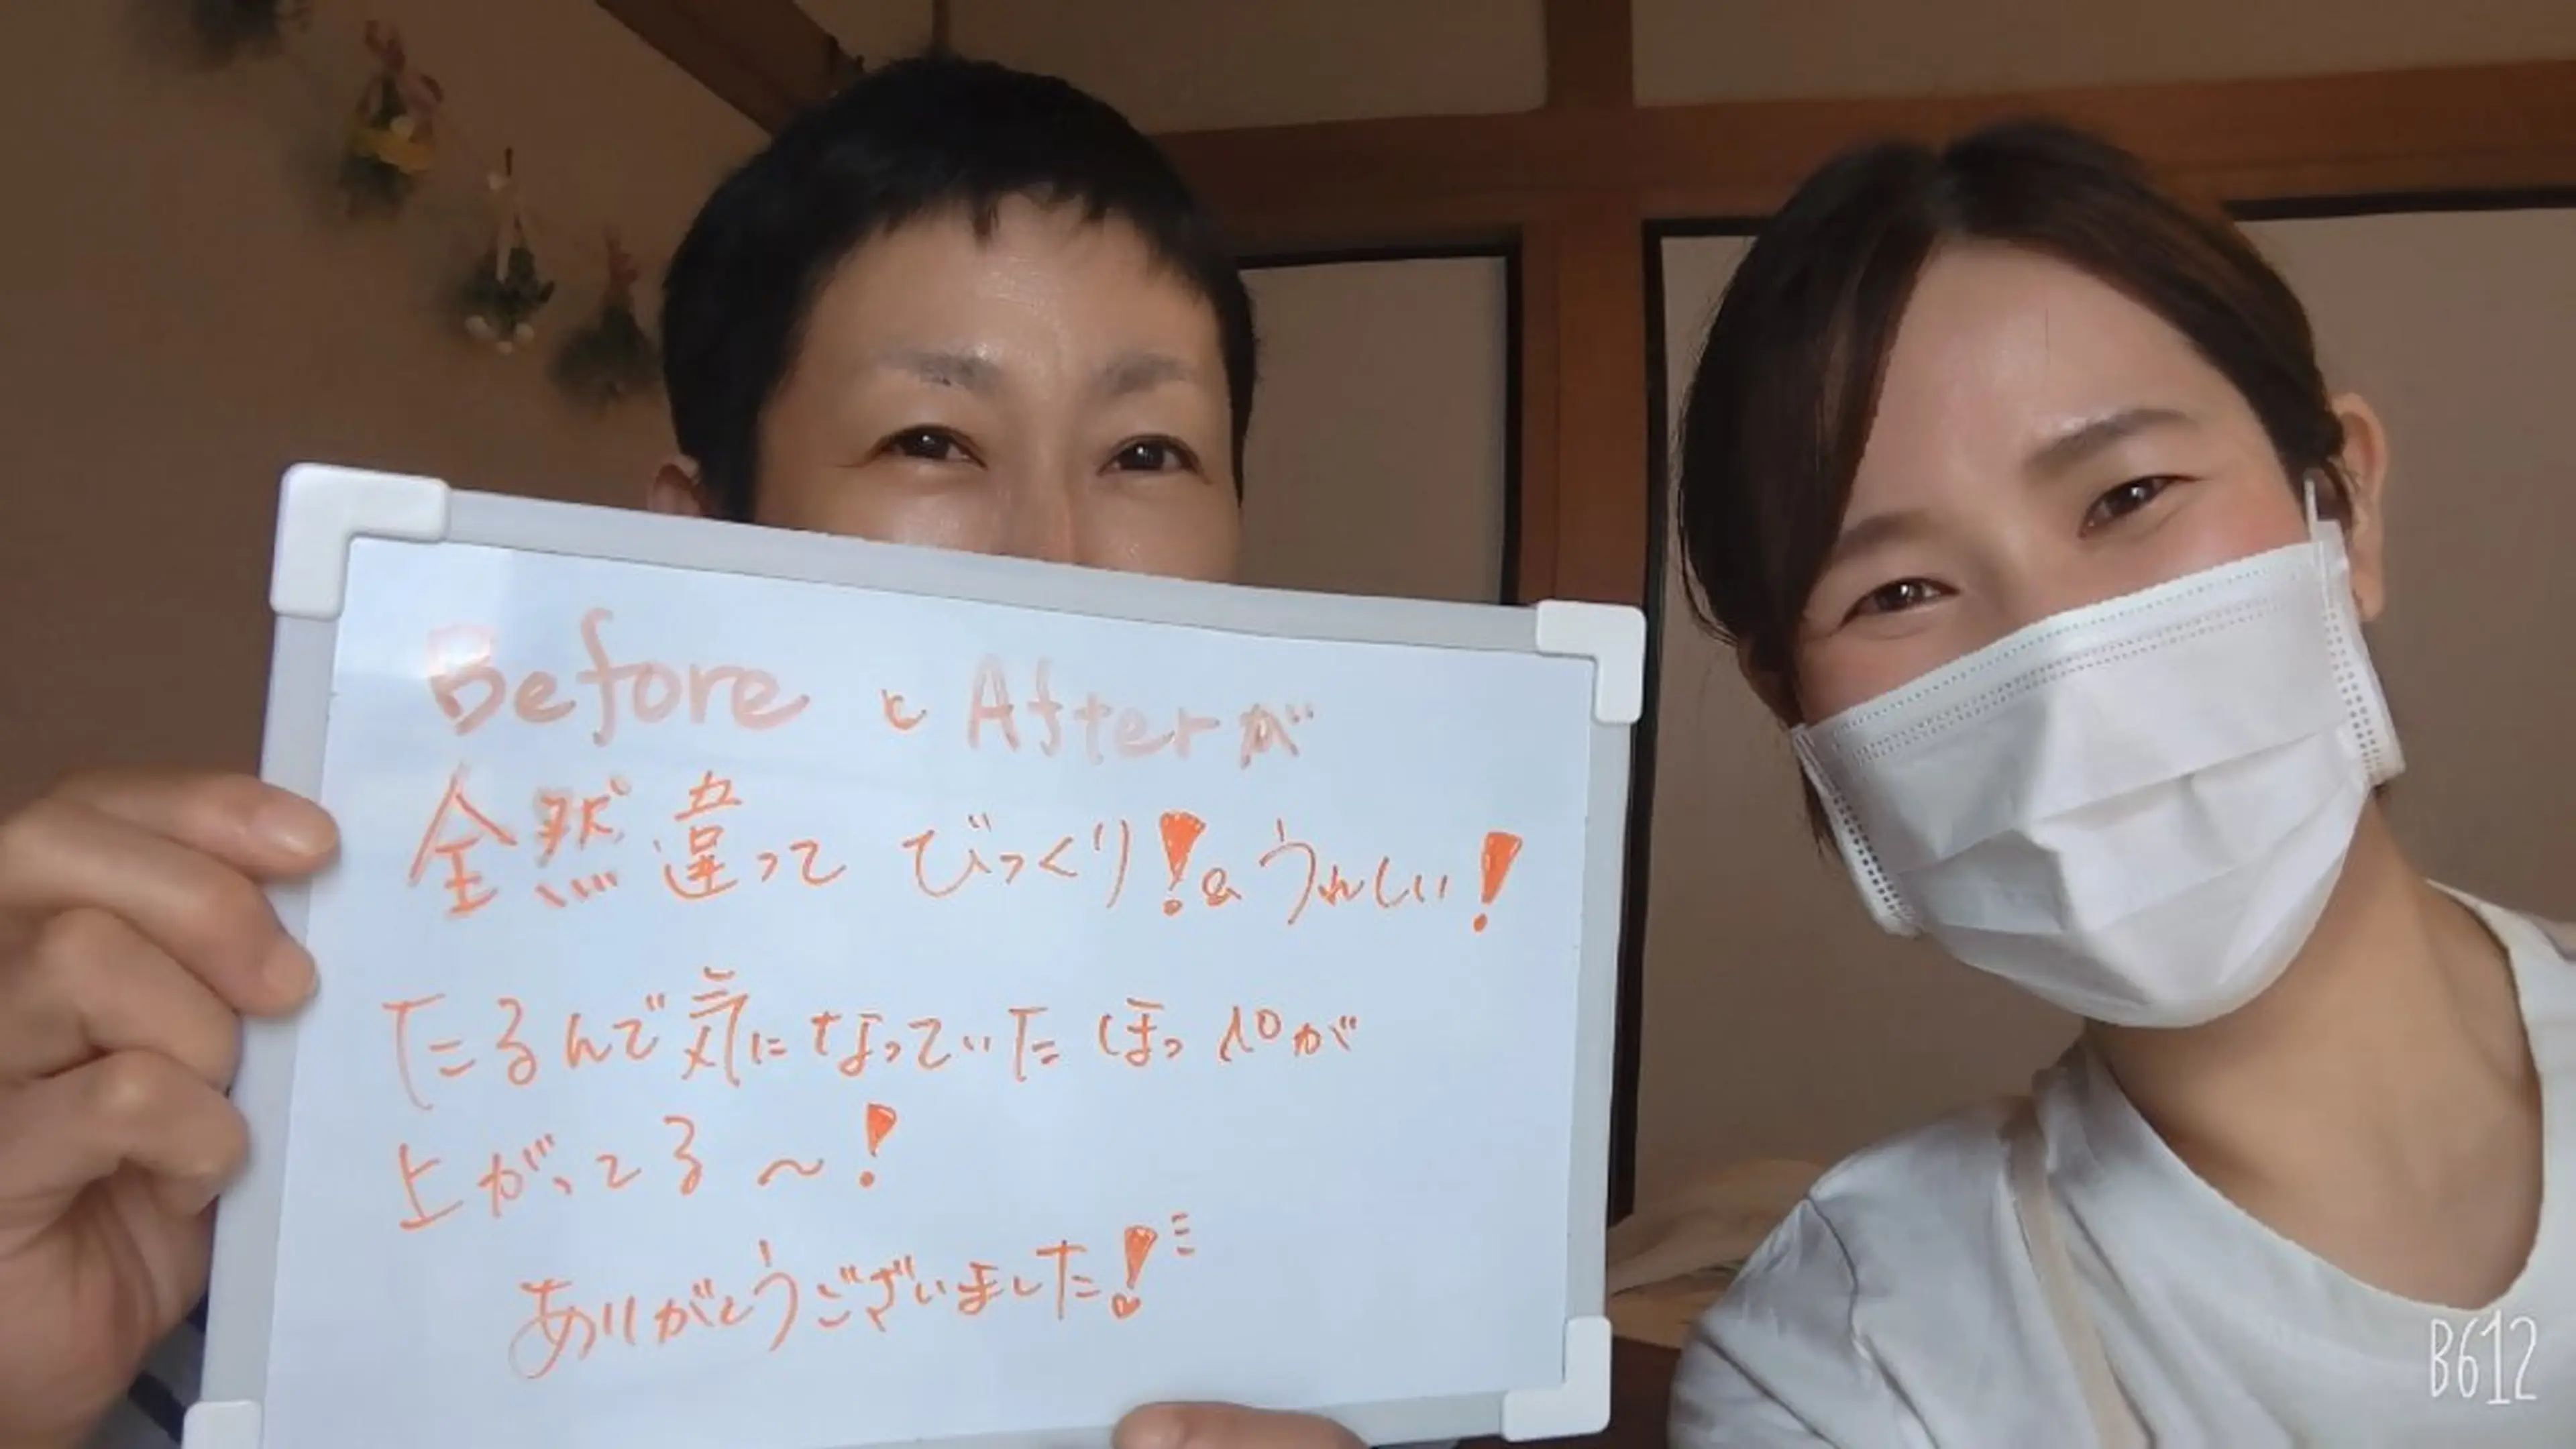 Before と Afterが
全然違って びっくり!&うれしい!
たるんで気になっていた ほっぺが
上がってる〜!
ありがとうございました!
B612